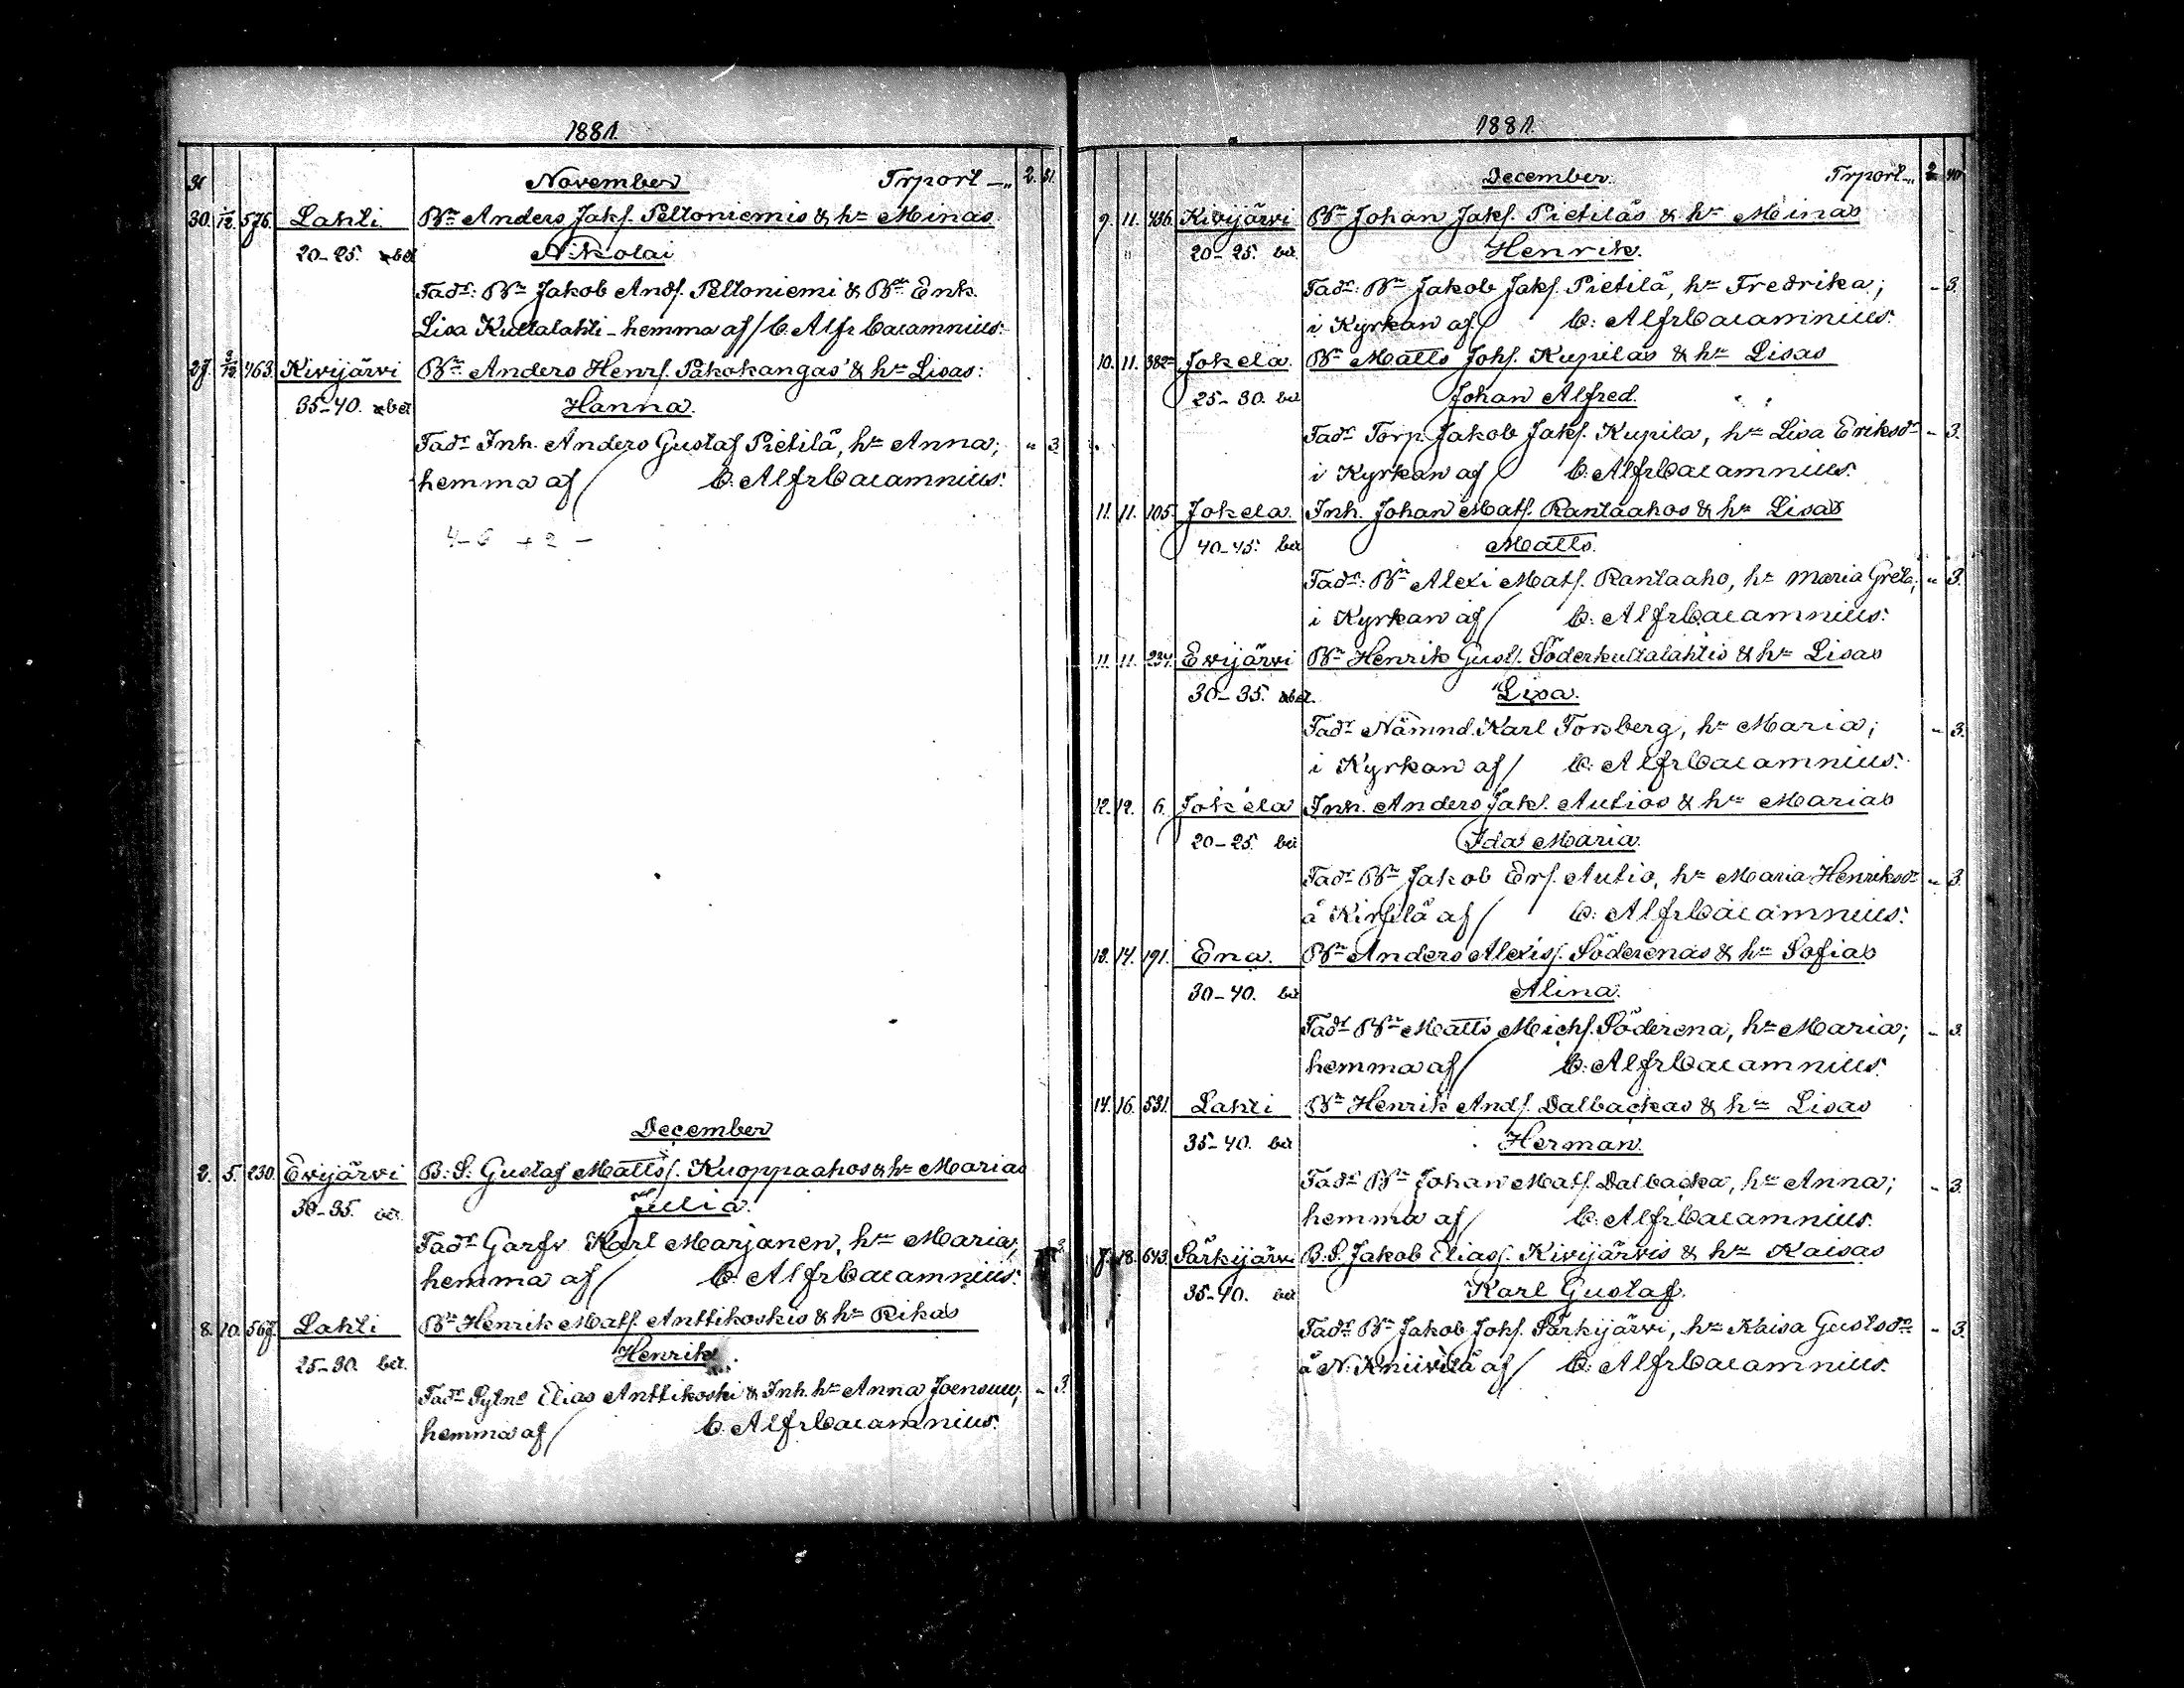 1881.
November Trport -„ 2. 51.
30. 1/12. 576. Lahti. Bn Anders Jaks. Peltoniemis & hu Minas
20-25. Nikolai
Fadr: Bn Jakob Ands. Peltoniemi & Bn Enk.
Lisa Kultalahti - hemma af / C. Alfr Cajamnius.
27. 2/12. 463. Kivijärvi Bn Anders Henrs. Pakokangas' & hu Lisas:
35-40. Hanna.
Fadr Inh. Anders Gustaf Pietilä, hu Anna; „ 3.
hemma af / C. Alfr Cajamnius.
December
2. 5. 230. Evijärvi B. S. Gustaf Mattss. Kuoppaahos & hu Marias
30-35. Julia.
Fadr Garfv Karl Marjanen, hu Maria,
hemma af / C. Alfr Cajamnius.
8. 10. 567. Lahti Bn Henrik Mats. Anttikoskis & hu Rikas
25-30. bä. Henrik
Fadr Sytnr Elias Anttikoski & Inh. hu Anna Joensuu; „ 3.
hemma af / C. Alfr Cajamnius.
1881.
December. Trport „ 2 40.
9. 11. 436. Kivijärvi Bn Johan Jaks. Pietiläs & hu Minas
„ 20-25. bä. Henrik.
Fadr: Bn Jakob Jaks. Pietilä, hu Fredrika; - 3.
i Kyrkan af / C. Alfr Cajamnius.
10. 11. 382. Jokela. Bn Matts Johs. Kupilas & hu Lisas
25-30. bä Johan Alfred.
Fadr Torp. Jakob Jaks. Kupila, hu Lisa Eriksdr - 3.
i Kyrkan af / C. Alfr Cajamnius.
11. 11. 105. Jokela. Inh. Johan Mats. Rantaahos & hu Lisas
40-45. bä Matts.
Fadr: Bn Alexi Mats. Rantaaho, hu Maria Greta; „ 3.
i Kyrkan af / C. Alfr Cajamnius.
11. 11. 234. Evijärvi Bn Henrik Gusts. Söderkultalahtis & hu Lisas
30-35. Lisa.
Fadr Nämnd. Karl Forsberg, hu Maria; - 3.
i Kyrkan af / C. Alfr Cajamnius.
12. 12. 6. Jokela Inh. Anders Jaks. Autios & hu Marias
20-25. bä Ida Maria.
Fadr Bn Jakob Ers. Autio, hu Maria Henriksdr „ 3.
å Kirsilä af / C. Alfr Cajamnius.
13. 14. 191. Ena. Bn Anders Alexiss. Söderenas & hu Sofias
30-40. bä Alina.
Fadr Bn Matts Michs. Söderena, hu Maria; - 3.
hemma af / C. Alfr Cajamnius.
14. 16. 531. Lahti Bn Henrik Ands. Dalbackas & hu Lisas
35-40. bä Herman.
Fadr Bn Johan Mats. Dalbacka, hu Anna; - 3.
hemma af / C. Alfr Cajamnius.
7. 18. 643. Särkijärvi B. S. Jakob Eliass. Kivijärvis & hu Kaisas
35-40. bä Karl Gustaf.
Fadr Bn Jakob Johs. Särkijärvi, hu Kaisa Gustsdr - 3.
å N. Kniivilä af / C. Alfr Cajamnius.